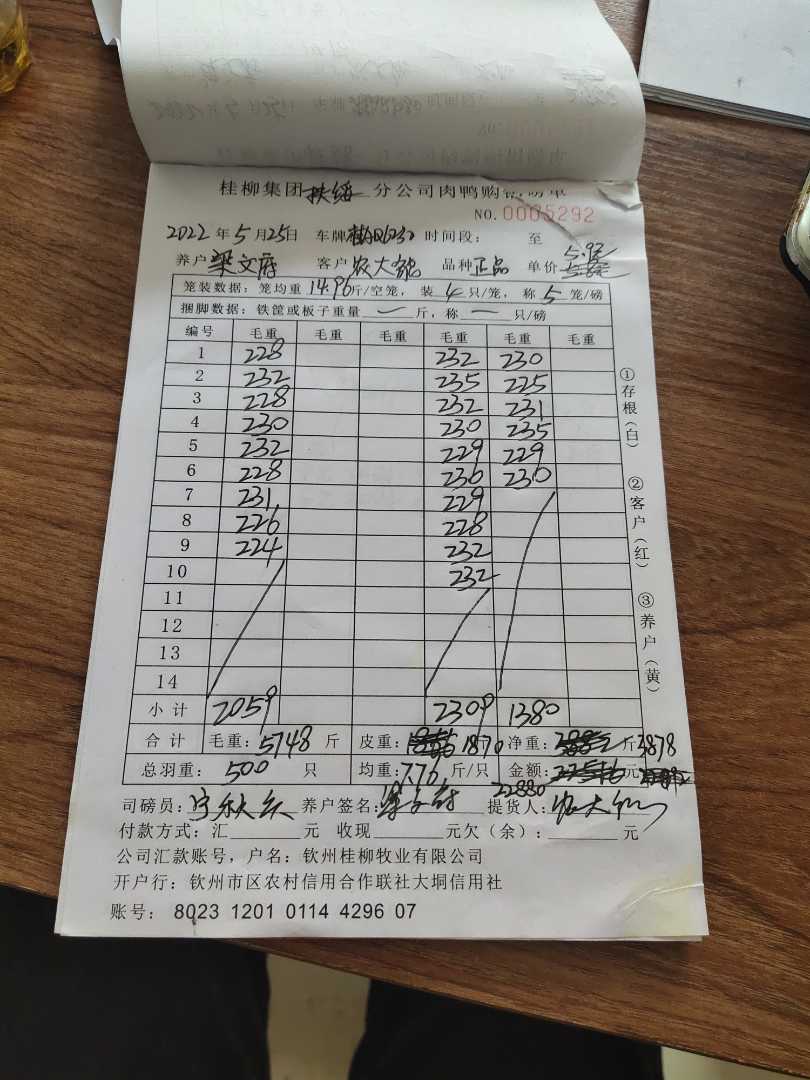 桂柳集团扶绥分公司肉鸭购销磅单
NO.0005292
2022年5月25日 车牌 时间段: 至
养户梁文府 客户农大 品种正品 单价5.92
笼装数据: 笼均重14.96斤/空笼, 装4只/笼, 称5笼/磅
捆脚数据: 铁筐或板子重量一斤,称一只/磅
编号 毛重 毛重 毛重 毛重 毛重 毛重
1 228 232 230
2 232 235 225
3 228 232 231
4 230 230 235
5 232 229 229
6 228 230 230
7 231 229
8 226 228
9 224 232
10 232
11
12
13
14
小计 2059 2309 1380
合计 毛重:5748斤 皮重:1870 净重: 斤3878
总羽重: 500只 均重:7.76斤/只 金额: 元
22880
司磅员: 养户签名: 提货人:
付款方式:汇 元 收现 元欠(余): 元
公司汇款账号,户名:钦州桂柳牧业有限公司
开户行:钦州市区农村信用合作联社大垌信用社
账号: 8023 1201 0114 4296 07
①存根(白)
②客户(红)
③养户(黄)